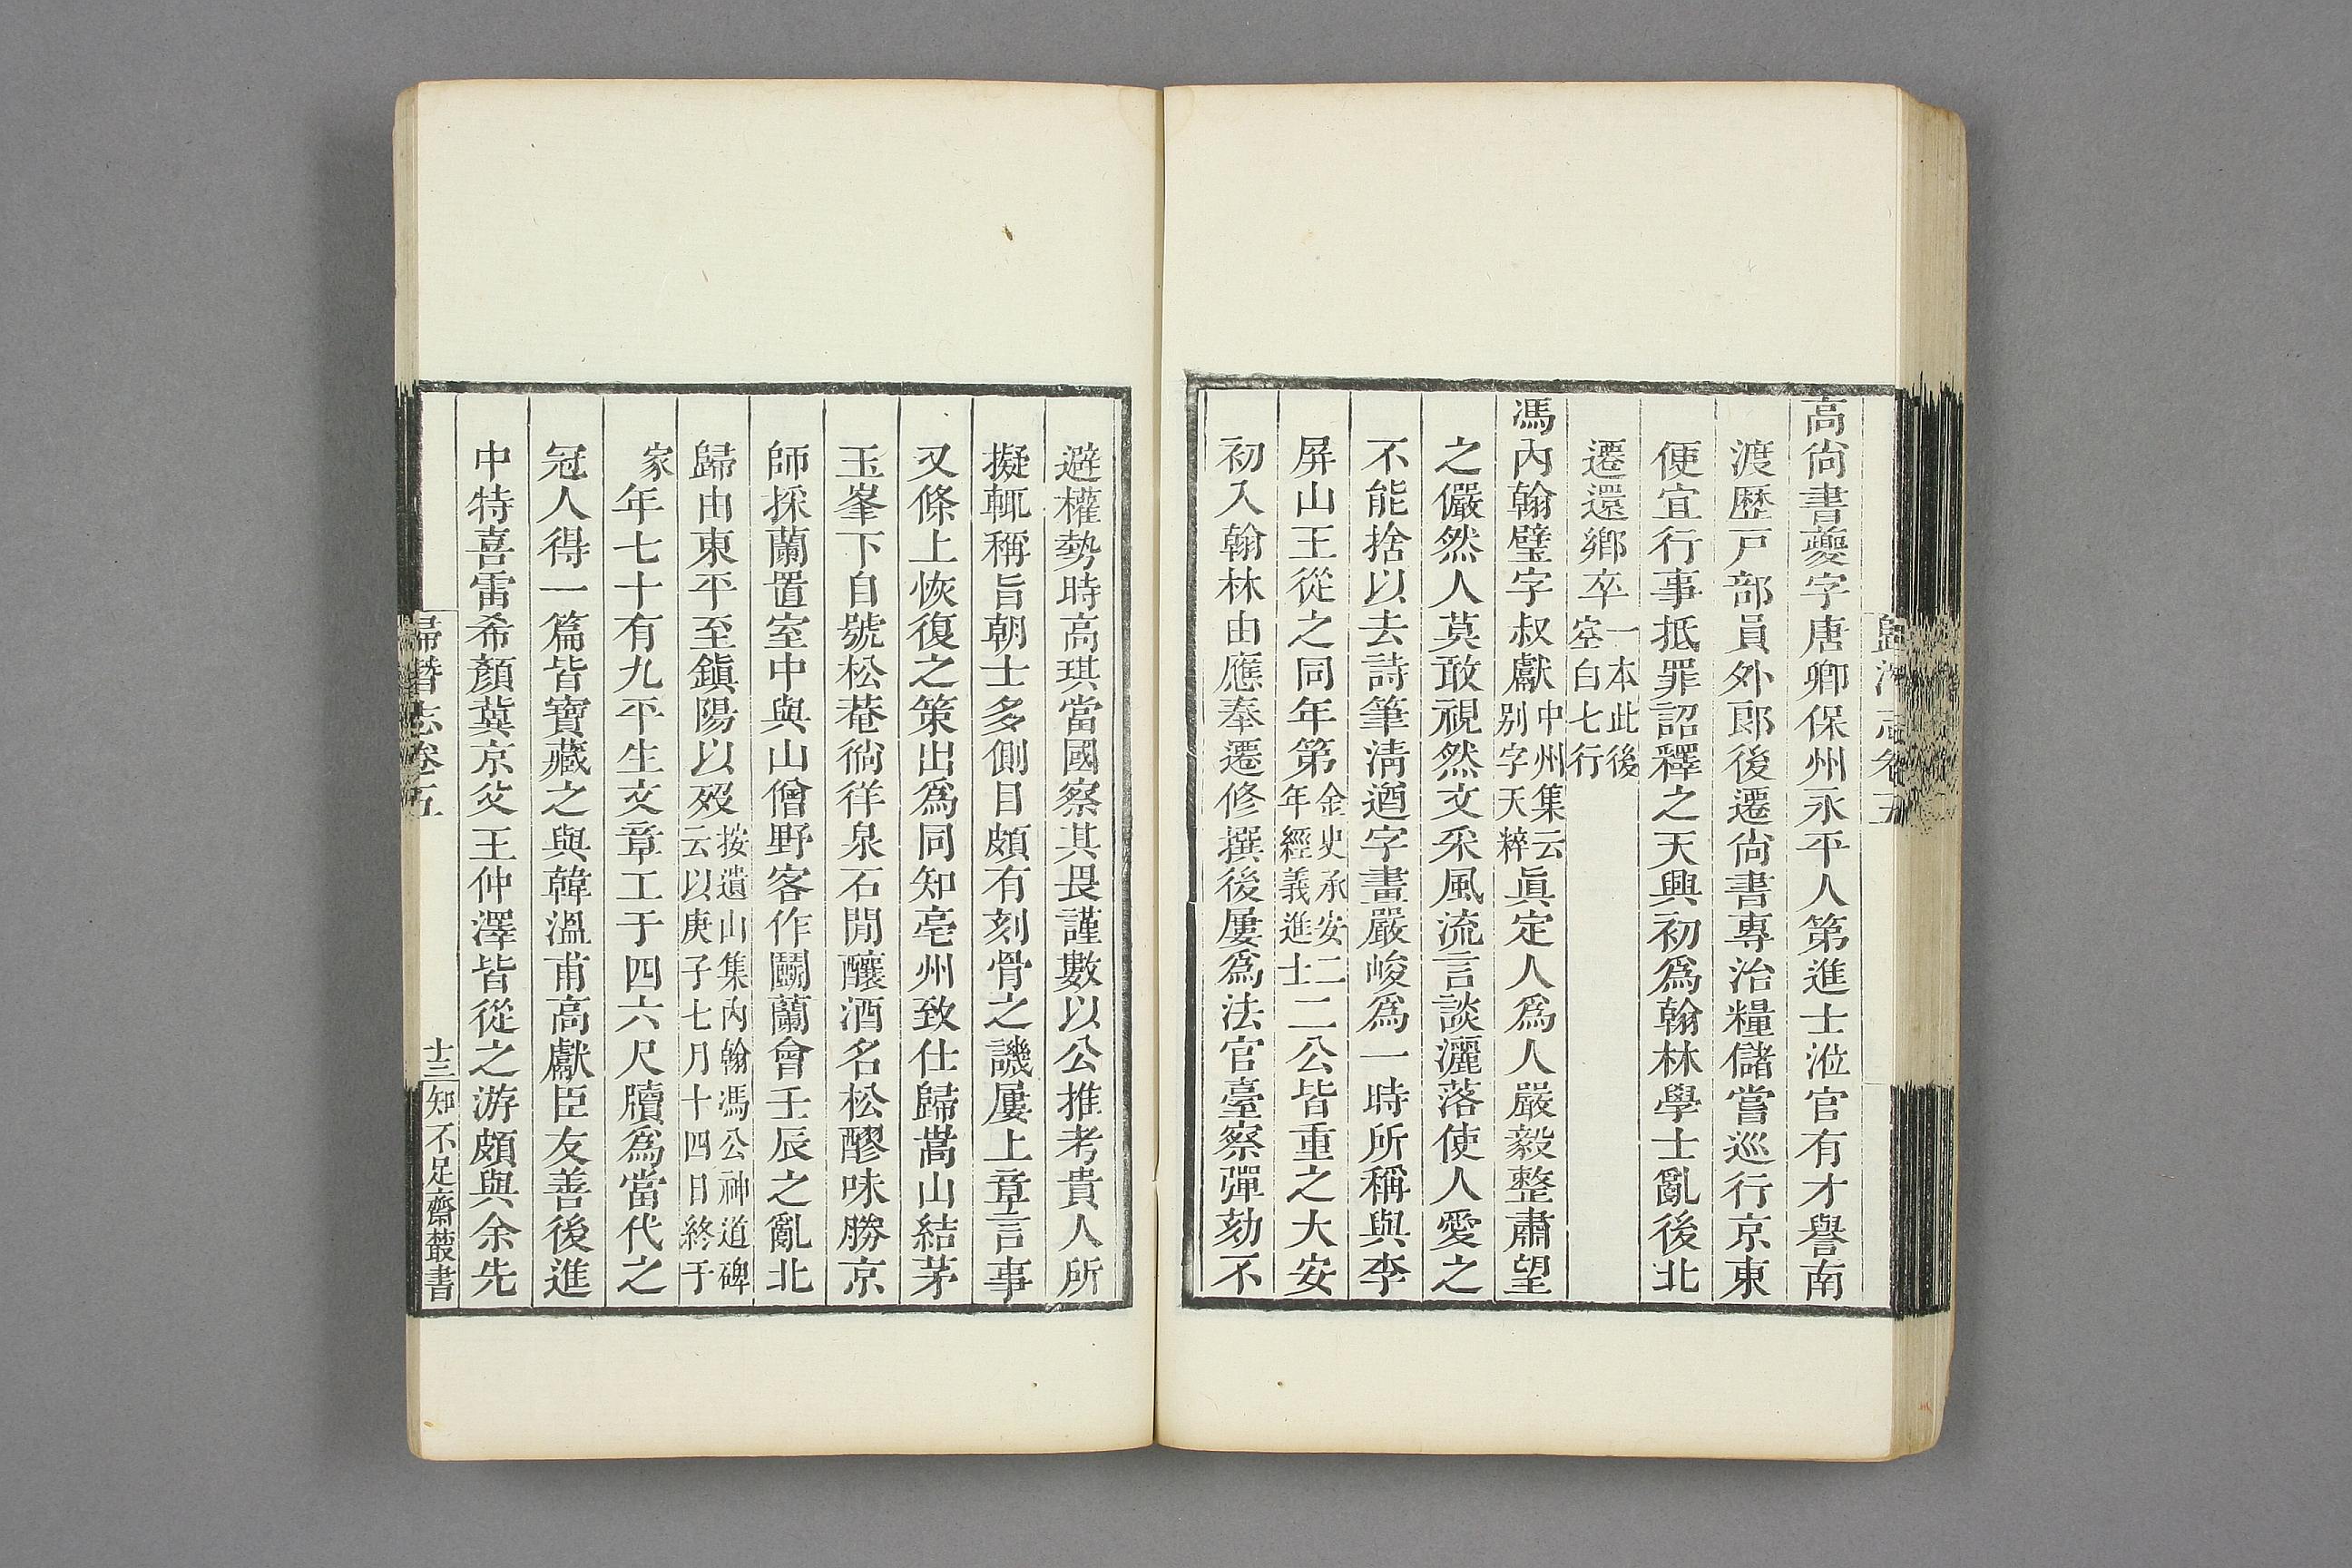 歸潛志卷五
高尚書夔字唐卿保州永平人第進士涖官有才譽南
渡歷戸部員外郎後遷尚書專治糧儲嘗巡行京東
便宜行事抵罪詔釋之天興初爲翰林學士亂後北
遷還鄉卒一本此後空白七行
馮內翰璧字叔獻中州集云别字天粹眞定人爲人嚴毅整肅望
之儼然人莫敢視然文采風流言談灑落使人愛之
不能捨以去詩筆淸遒字畫嚴峻爲一時所稱與李
屏山王從之同年第金史承安二年經義進士二公皆重之大安
初入翰林由應奉遷修撰後屢爲法官臺察彈劾不
避權勢時高琪當國察其畏謹數以公推考貴人所
擬輒稱旨朝士多側目頗有刻骨之譏屢上章言事
又條上恢復之策出爲同知亳州致仕歸嵩山結茅
玉峯下自號松菴徜徉泉石閒釀酒名松醪味勝京
師採蘭置室中與山僧野客作鬭蘭會壬辰之亂北
歸由東平至鎭陽以歿按遺山集內翰馮公神道碑云以庚子七月十四日終于
家年七十有九平生文章工于四六尺牘爲當代之
冠人得一篇皆寶藏之與韓溫甫高獻臣友善後進
中特喜雷希顏冀京父王仲澤皆從之游頗與余先
歸潛志卷五
十三
知不足齋叢書